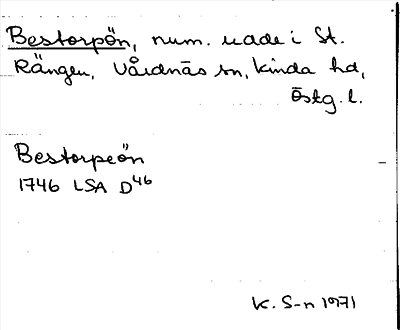 Bestorpön, num. udde i St.
Rängen, Vårdnäs sn, Kinda hd,
Östg. l.
Bestorpeön
1746 LSA D46
K. S-n 1971